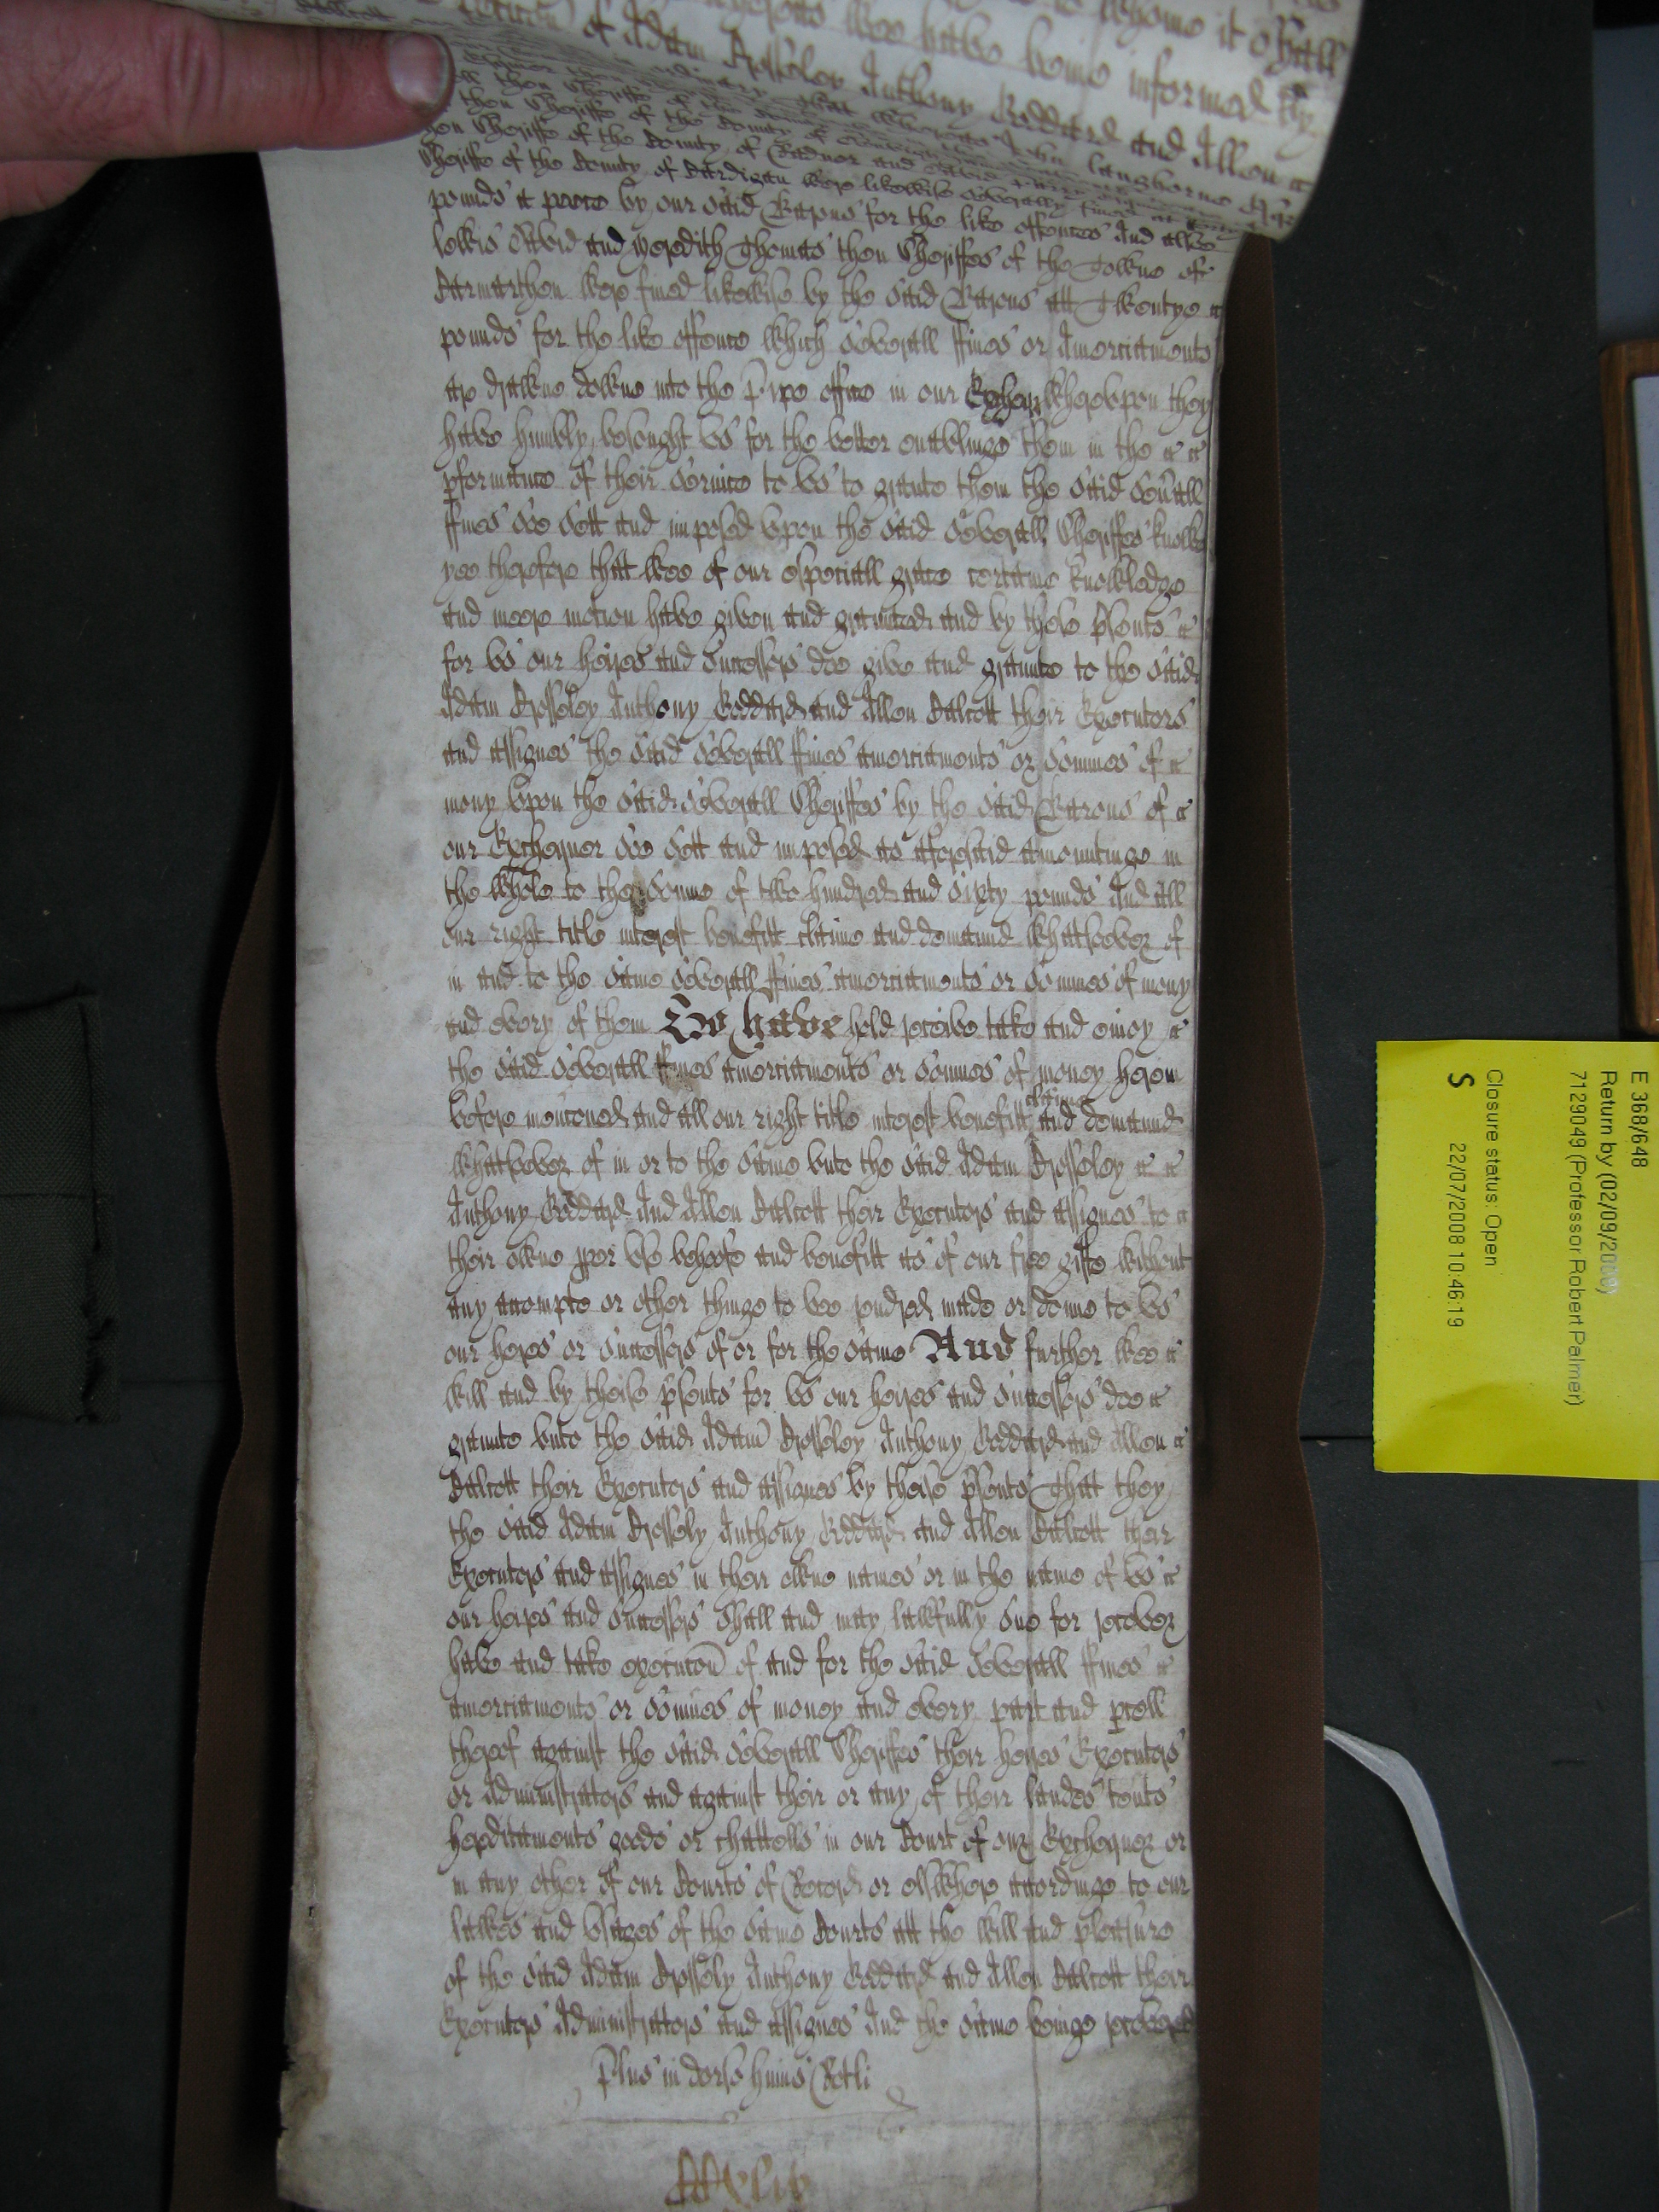 whome it shall
wee have beine informed by
of Adam Cresseley Anthony Goddard and Allen
that whereas John Langhorne
then Sheriffe of the County of
then Sheriffe of the County of Radnor and David
Sheriffe of the County of Cardigan were likewise severally fined at
pounds a peece by our said Barons for the like offences And alsoe
Lewis David and Meredith Thomas then Sheriffes of the Towne of
Carmarthen were fined likewise by the said Barons att Twentye
pounds for the like offence which severall ffines or Amerciaments
are drawne downe into the Pipe office in our Excheqr whereupon they
have humbly besought vs for the better enablinge them in the
pformance of their service to vs to graunte them the said sevall
ffines soe sett and imposed vpon the said severall Sheriffes knowe
yee therefore that wee of our especiall grace certaine knowledge
and meere motion have given and graunted and by these psents
for vs our heires and successors doe give and graunte to the said
Adam Cresseley Anthony Goddard and Allen Calcott their Executors
and assignes the said severall ffines amerciaments or sommes of
mony vpon the said severall Sheriffes by the said Barons of
our Exchequer soe sett and imposed as aforesaid amountinge in
the whole to the somme of two hundred and sixty pounds And all
our right title interest benefitt claime and demaund whatsoever of
in and to the same severall ffines amerciaments or sommes of mony
and every of them To have hold receive take and enioy
the said severall ffines amerciaments or sommes of money herein
before menconed and all our right title interest benefitt claime and demaund
whatsoever of in or to the same vnto the said Adam Cresseley
Anthony Goddard And Allen Calcott their Executors and assignes to
their owne ppr vse behoofe and benefitt as of our free gifte without
any accompte or other thinge to bee rendred made or donne to vs
our heires or successors of or for the same And further wee
will and by theise psents for vs our heires and successors doe
graunte vnto the said Adam Cresseley Anthony Goddard and Allen
Calcott their Executors and assignes by these psents That they
the said Adam Cressely Anthony Goddard and Allen Calcott their
Executors and assignes in their owne names or in the name of vs
our heires and successors shall and may lawfully sue for recover
have and take execucon of and for the said severall ffines
amerciaments or sommes of money and every part and pcell
thereof against the said severall Sheriffes their heires Executors
or Administrators and against their or any of their landes tents
hereditaments goods or chattells in our Court of our Exchequer or
in any other of our Courts of Record or elswhere accordinge to our
lawes and vsages of the same Courts att the will and pleasure
of the said Adam Cressely Anthony Goddard and Allen Calcott their
Executors Administrators and assignes And the same beinge recovered
Plus in dorso huius Rotli
E 368/648
Return by (02/09/2008)
7129049 (Professor Robert Palmer)
Closure status: Open
S 22/07/2008 10:46:19